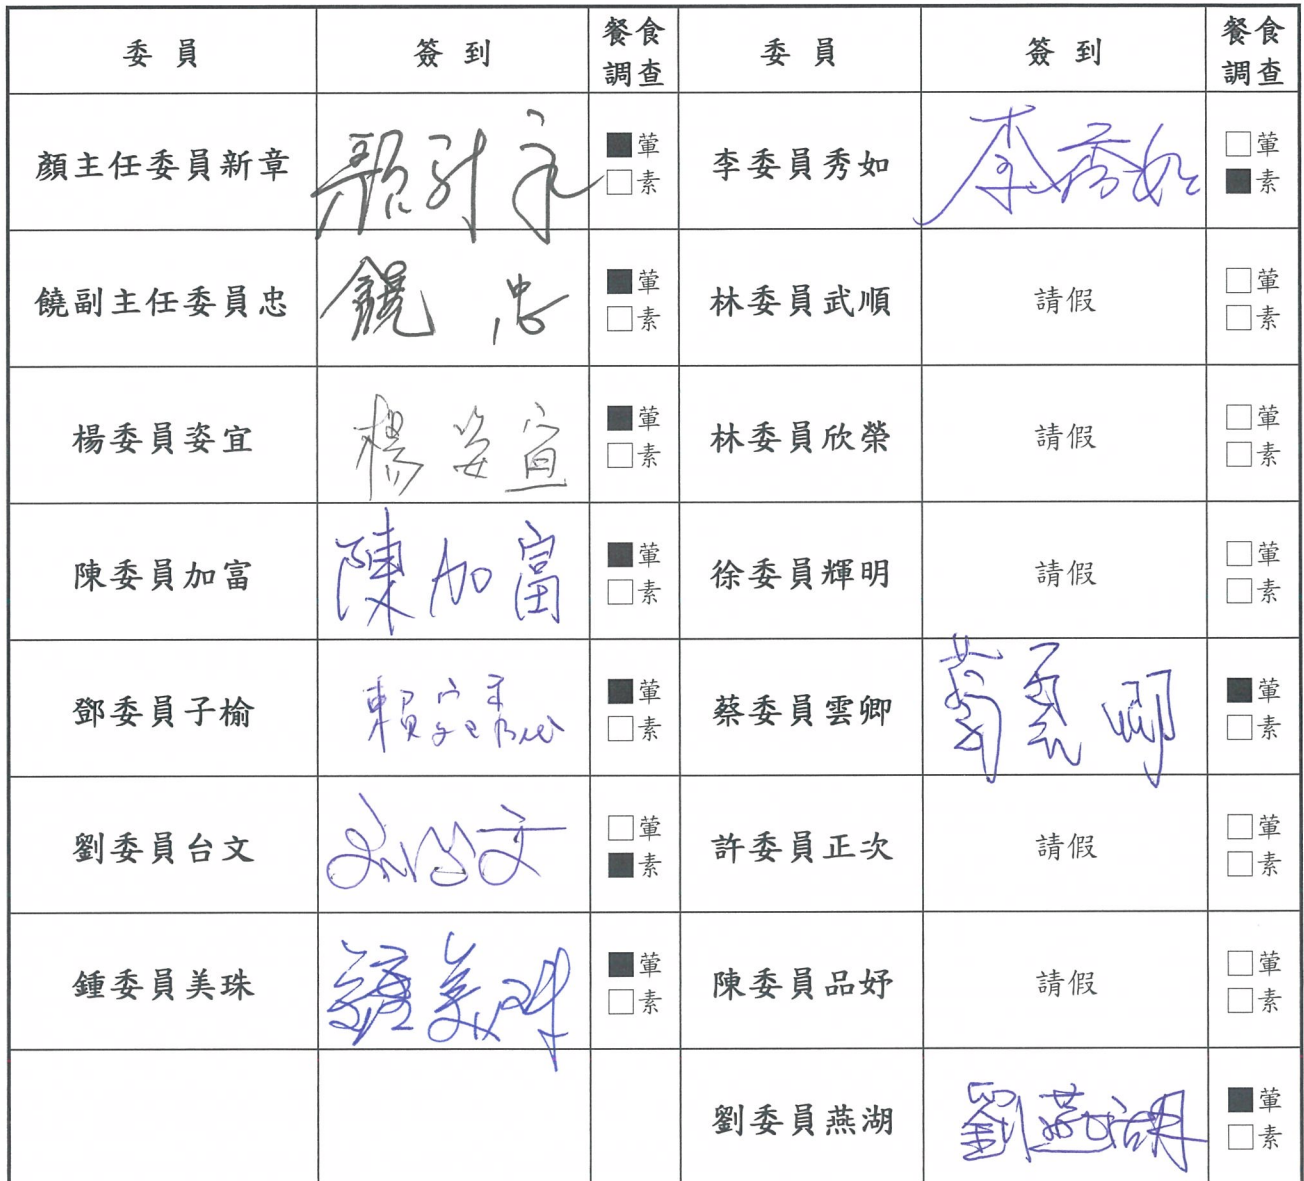 委員 簽到 餐食調查 委員 簽到 餐食調查
顏主任委員新章 ■葷 □素 李委員秀如 李秀如 □葷 ■素
饒副主任委員忠 饒忠 ■葷 □素 林委員武順 請假 □葷 □素
楊委員姿宜 楊姿宜 ■葷 □素 林委員欣榮 請假 □葷 □素
陳委員加富 陳加富 ■葷 □素 徐委員輝明 請假 □葷 □素
鄧委員子榆 ■葷 □素 蔡委員雲卿 蔡雲卿 ■葷 □素
劉委員台文 劉台文 □葷 ■素 許委員正次 請假 □葷 □素
鍾委員美珠 鍾美珠 ■葷 □素 陳委員品妤 請假 □葷 □素
劉委員燕湖 劉燕湖 ■葷 □素